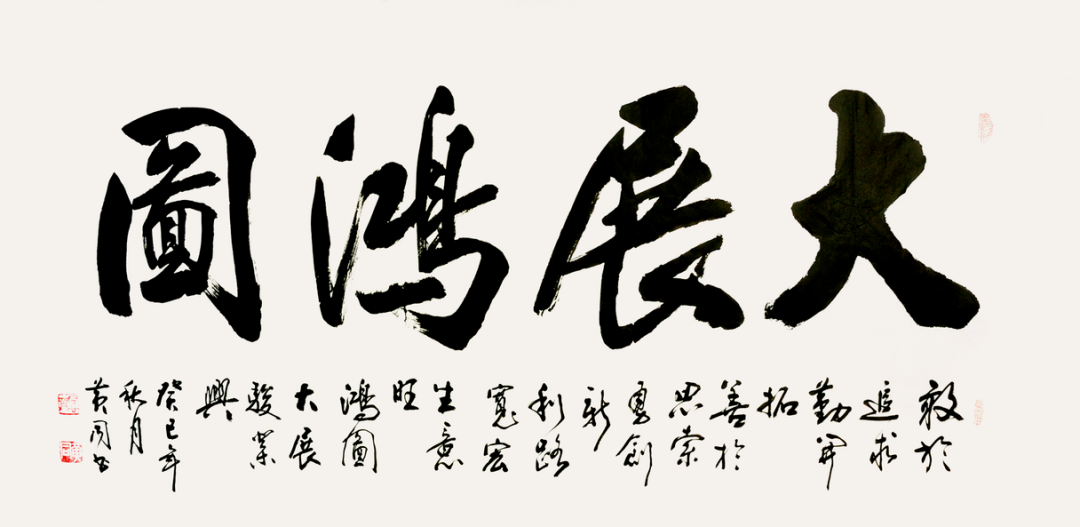 大展鴻圖
敢於
追求
勤開
拓
善於
思索
勇創
新
利路
寬宏
生意
旺
鴻圖
大展
駿業
興
癸巳年
秋月
黄周书